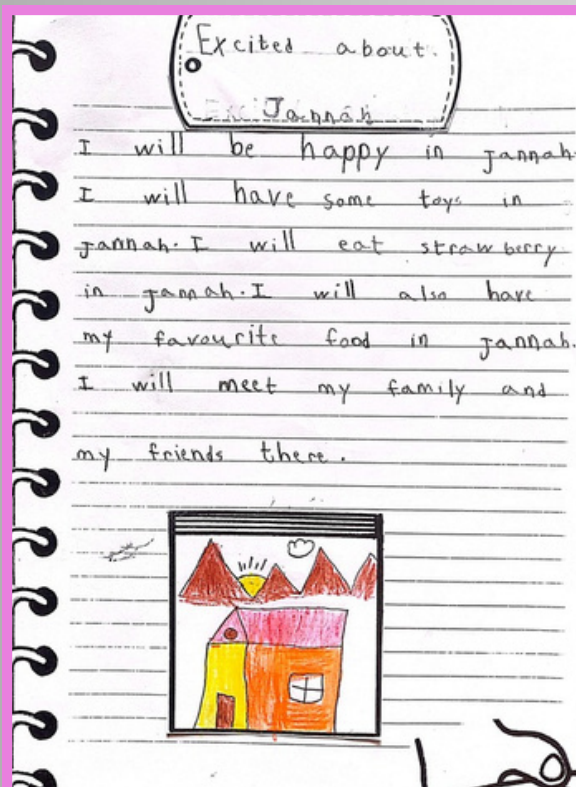 Excited about.
Jannah
I will be happy in Jannah.
I will have some toys in
Jannah. I will eat strawberry
in Jannah. I will also have
my favourite food in Jannah.
I will meet my family and
my friends there.